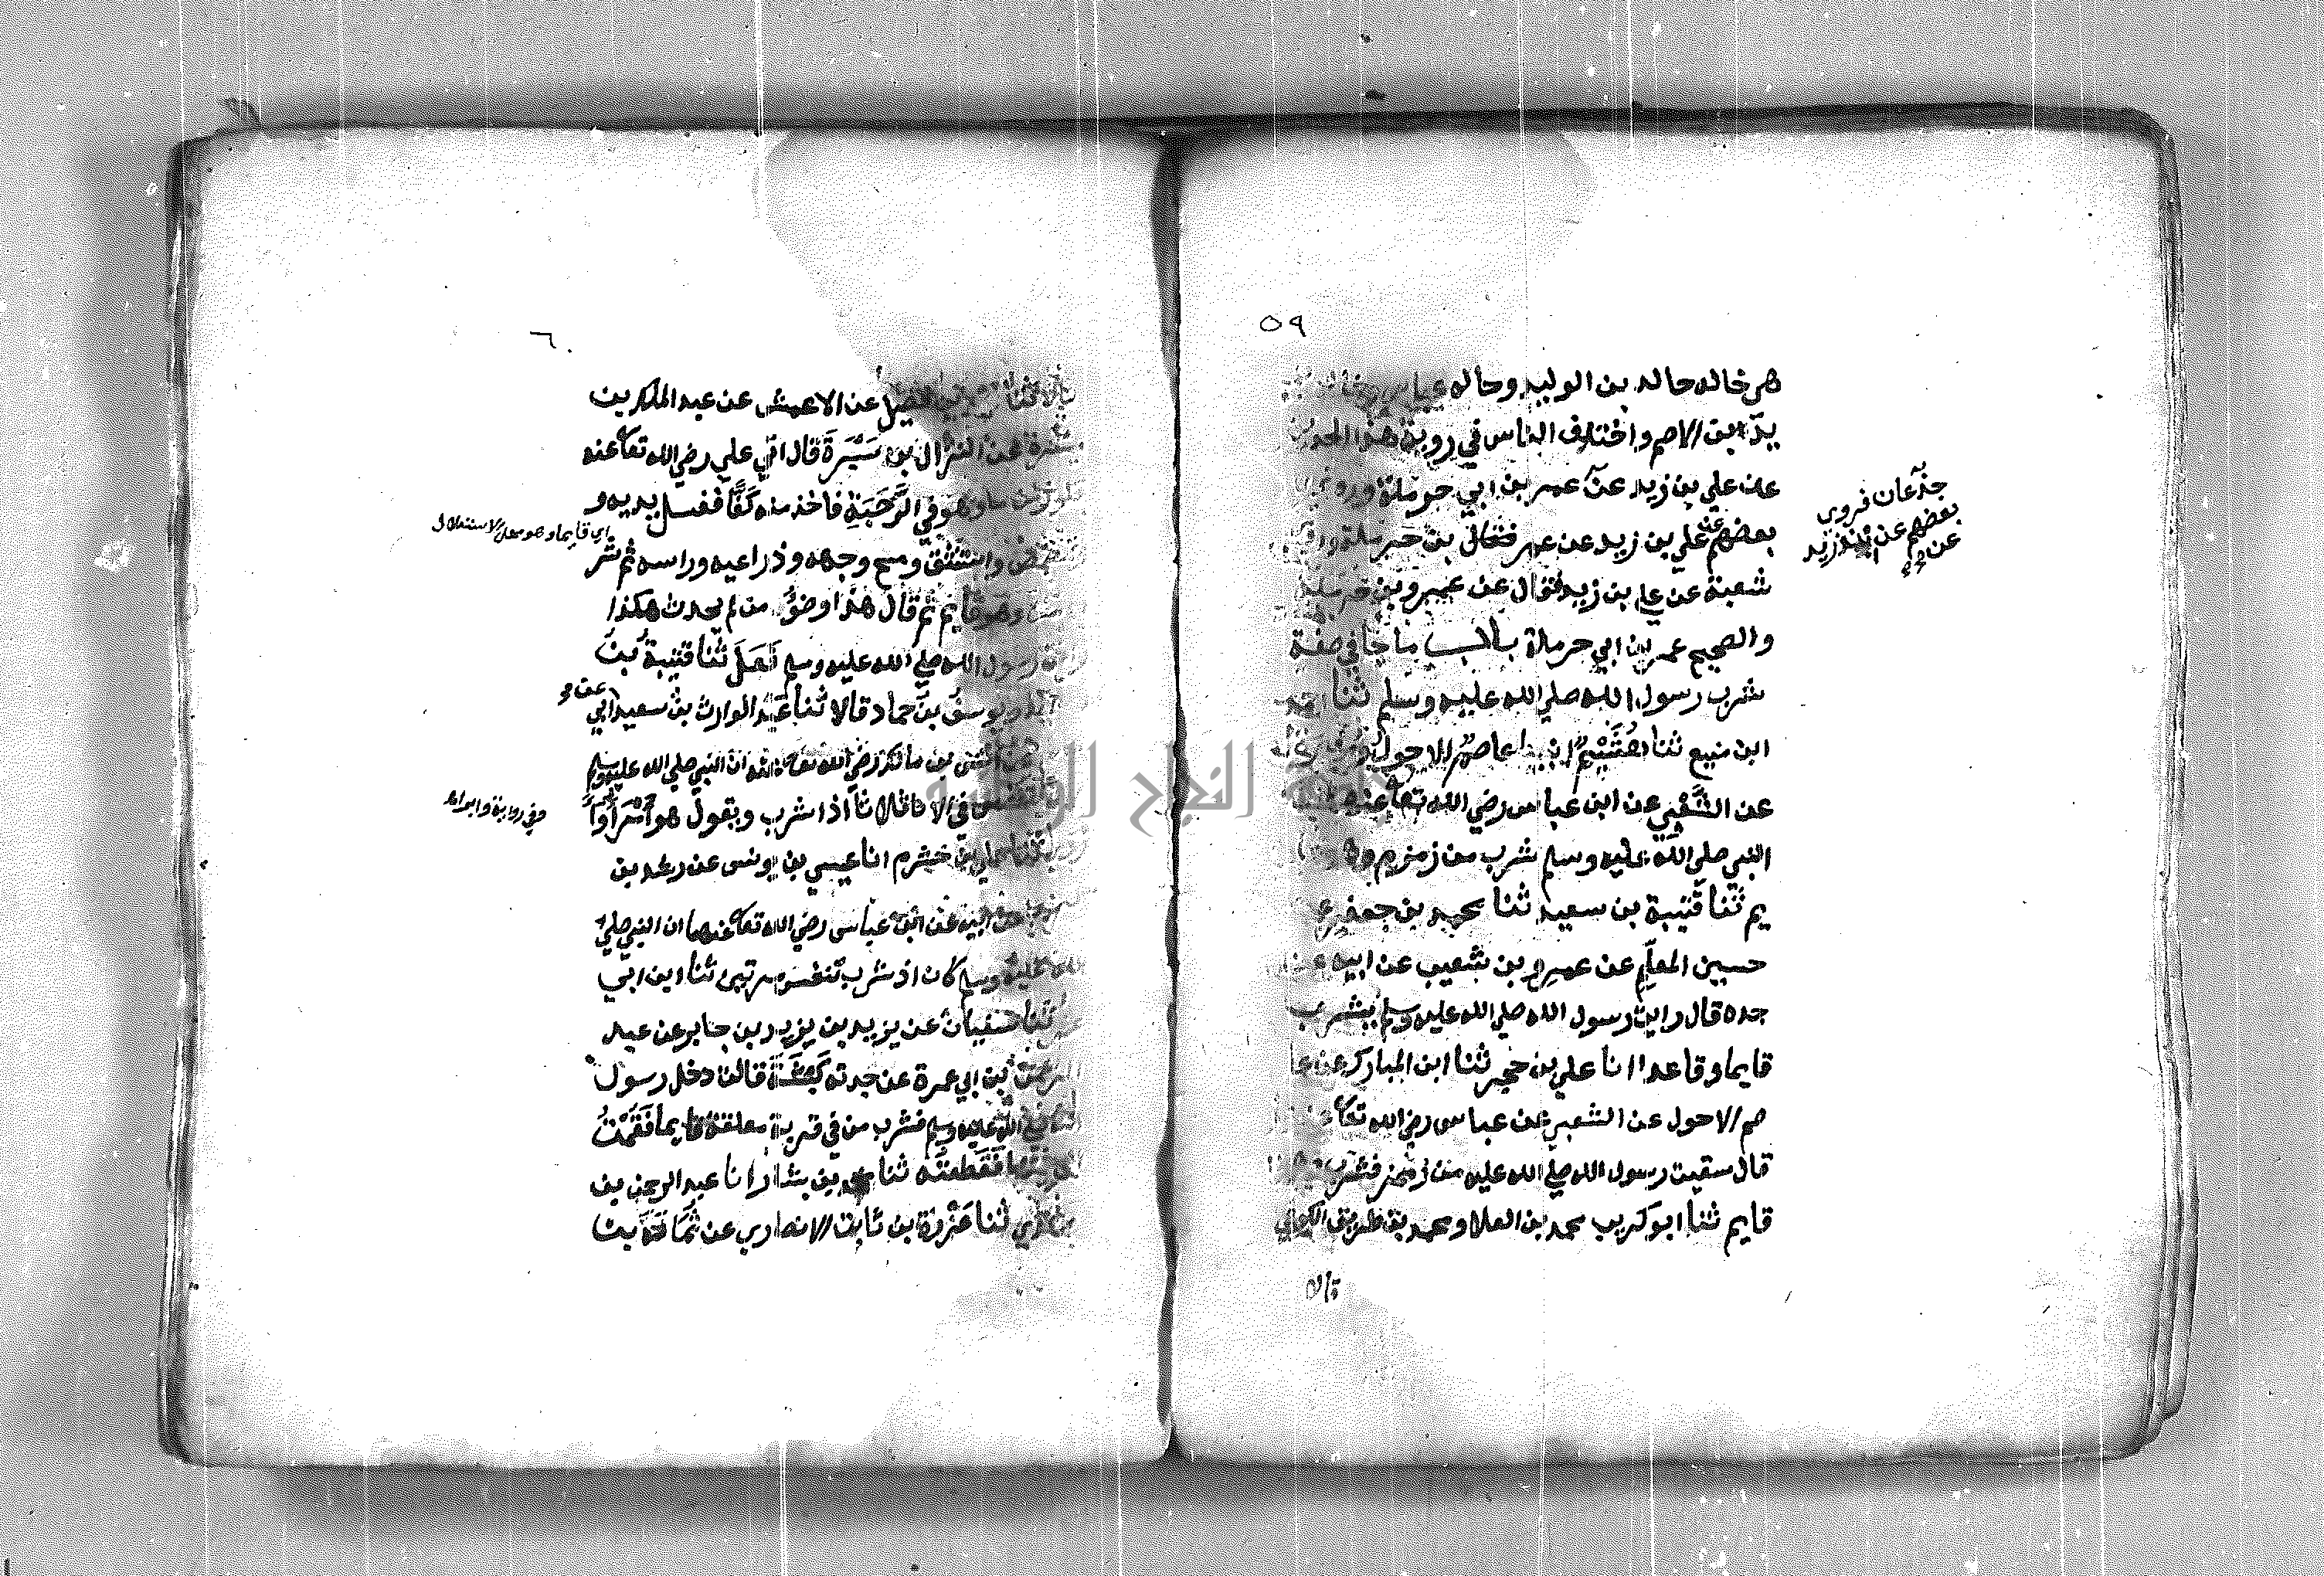 ٥٩
هي خاله خالد بن الوليد وخاله عباس وخاله
يزيد بن الاصم واختلف الناس في روية هذا الحديث
عن علي بن زيد عن عمر بن ابي حرملة وروي
بعضهم عن علي بن زيد عن عمر فقال بن حرملة
شعبة عن علي بن زيد فقال عن عمرو بن حرملة
والصحيح عمر بن ابي حرملة باب ما جا في صفة
شرب رسول الله صلي الله عليه وسلم ثنا احمد
ابن منيع ثنا هُشَيْمٌ انبا عاصم الاحول
عن الشَّعْبِي عن ابن عباس رضي الله تعا عنهما
النبي صلي الله عليه وسلم شرب من زمزم وهو
يم ثنا قتيبة بن سعيد ثنا محمد بن جعفر
حسين المعلم عن عمرو بن شعيب عن ابيه عن
جده قال رايت رسول الله صلي الله عليه وسلم يشرب
قايما وقاعدا انا علي بن حجر ثنا ابن المبارك عن عا
صم الاحول عن الشعبي عن عباس رضي الله تعا
قال سقيت رسول الله صلي الله عليه من زمزم فشرب
قايم ثنا ابو كريب محمد بن العلا ومحمد بن طريف الكوفي
قالا
جذعان فروي
بعضهم عن زيد
عن
٦٠
عن الاعمش عن عبد الملك بن
عن النزال بن سَبْرَةَ قال اتي علي رضي الله تعا عنه
وهو في الرَّحَبَةِ فاخذ منه كَفًّا فغسل يديه و
واستنشق ومسح وجهه وذراعيه وراسه ثم
وهو قايم ثم قال هذا وضؤ من لم يحدث هكذا
رسول الله صلي الله عليه وسلم فَعَلَ ثنا قتيبة بن
ويوسف بن حماد قالا ثنا عبد الوارث بن سعيد عن ابي
عن انس بن مالك رضي الله تعا عنه ان النبي صلي الله عليه وسلم
في الانا ثلاثا اذا شرب ويقول هو اَمْرَأُ
ثنا علي بن خشرم انا عيسي بن يونس عن رشد بن
عن ابيه عن ابن عباس رضي الله تعا عنهما ان النبي صلي
الله عليه وسلم كان اذ شرب تنفس مرتين ثنا ابن ابي
ثنا سفيان عن يزيد بن يزيد بن جابر عن عبد
الرحمن بن ابي عمرة عن جدته كَبْشَةَ قالت دخل رسول
الله صلي الله عليه وسلم فشرب من في قربة معلقة قايما فَقُمْتُ
فَقَطَعْتُه ثنا محمد بن بشار انا عبد الرحمن بن
ثنا عَزْرَة ابن ثابت الانصاري عن ثُمَامَة بن
اي قايما وهو محل الاستدلال
وفي رواية وابرا